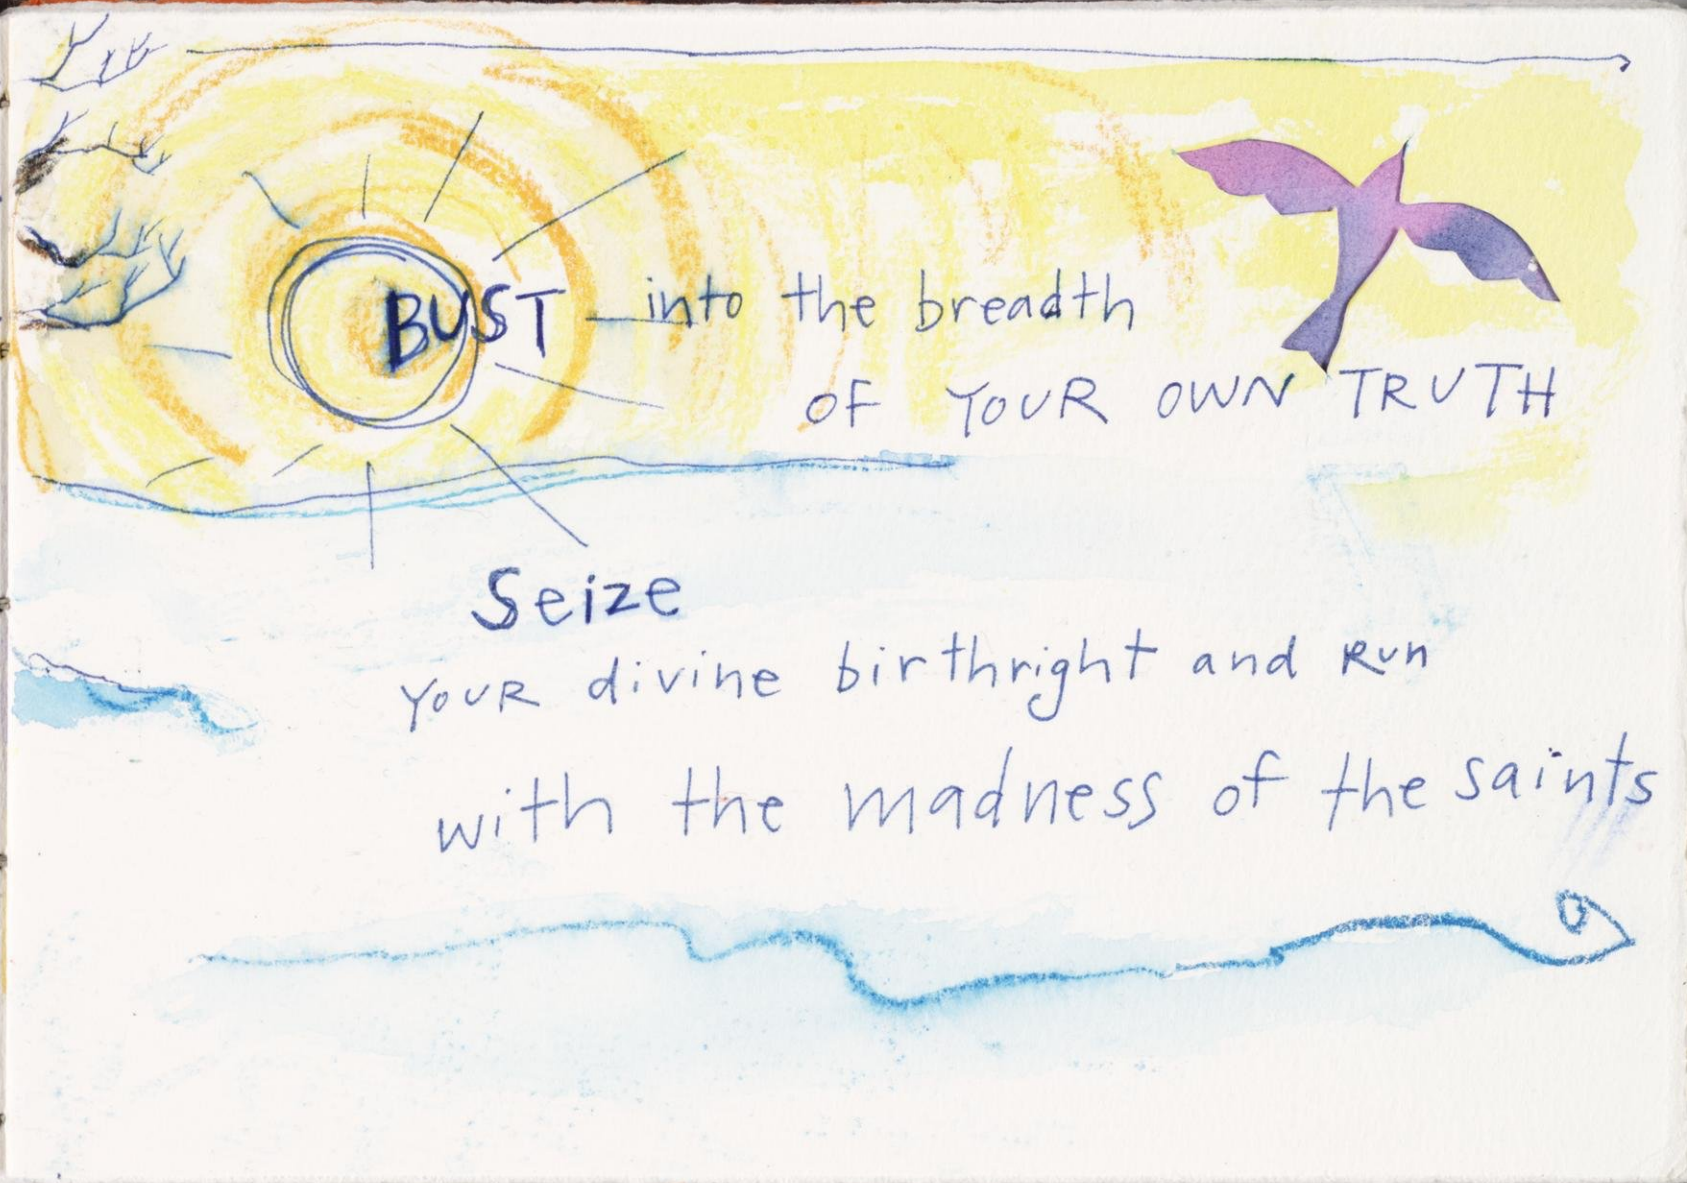 BUST into the breadth
OF YOUR OWN TRUTH
Seize
YOUR divine birthright and RUN
with the madness of the saints